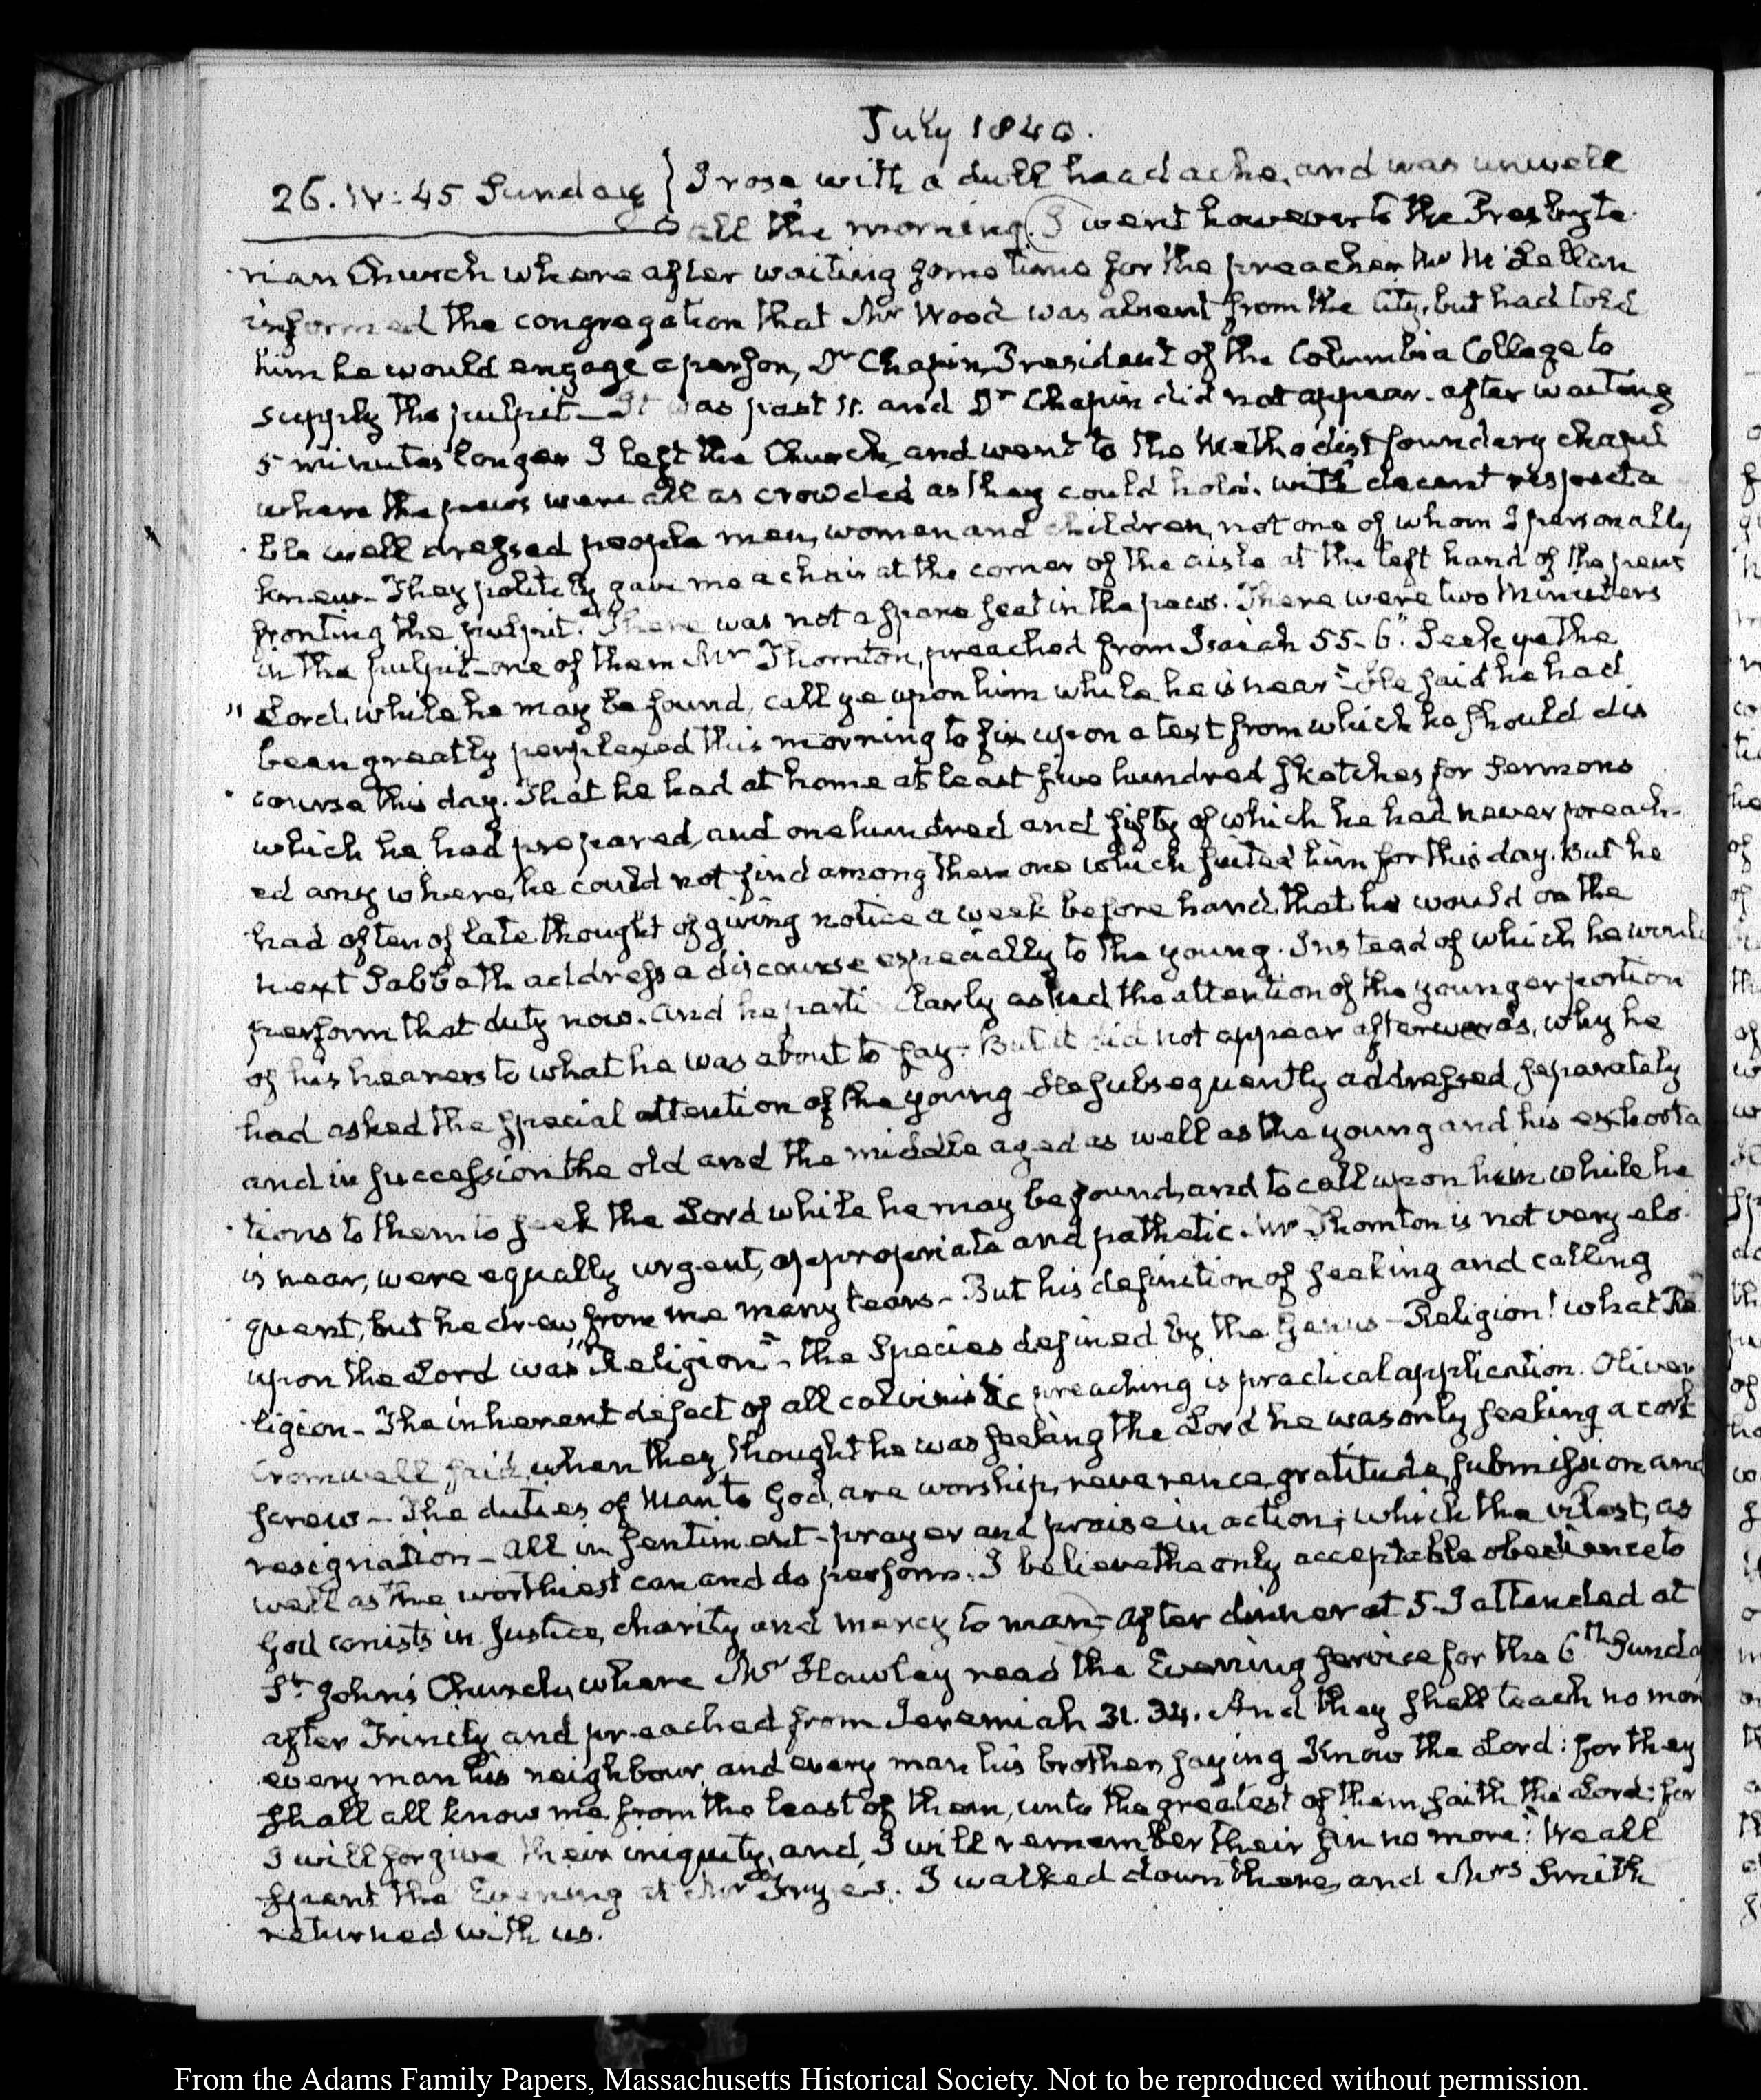 July 1840.
26. IV: 45 Sunday } I rose with a dull head ache, and was unwell
all the morning. I went however to the Presbyte-
rian Church where after waiting some time for the preacher Mr McLellan
informed the congregation that Mr Wood was absent from the City, but had told
him he would engage a person, Dr Chapin, President of the Columbia College to
supply the pulpit— It was past 11. and Dr Chapin did not appear. after waiting
5 minutes longer I left the Church, and went to the Methodist foundery chapel
where the pews were all as crowded as they could hold. with decent respecta-
ble well dressed people men, women and children, not one of whom I personally
knew— They politely gave me a chair at the corner of the aisle at the left hand of the pews
fronting the pulpit. There was not a spare seat in the pews. There were two Ministers
in the pulpit—one of them Mr Thornton, preached from Isaiah 55-6. "Seek ye the
" Lord, while he may be found, call ye upon him while he is near"— He said he had
been greatly perplexed this morning to fix upon a text from which he should dis
course this day. That he had at home at least five hundred sketches for Sermons
which he had prepared, and one hundred and fifty of which he had never preach-
ed any where, he could not find among them one which suited him for this day. But he
had often of late thought of giving notice a week before hand, that he would on the
next Sabbath address a discourse especially to the young. Instead of which he would
perform that duty now. and he parti larly asked the attention of the younger portion
of his hearers to what he was about to say— But it did not appear afterwards, why he
had asked the special attention of the young— He subsequently addressed separately
and in succession the old and the middle aged as well as the young and his exhorta
tions to them to seek the Lord while he may be found, and to call upon him while he
is near, were equally urgent, appropriate and pathetic. Mr Thornton is not very elo-
quent, but he drew from me many tears— But his definition of seeking and calling
upon the Lord was "Religion"— the Species defined by the Genus— Religion! what Re
ligion— The inherent defect of all calvinistic preaching is practical application. Oliver
Cromwell said, when they thought he was seeking the Lord he was only seeking a cork
screw— The duties of Man to God, are worship, reverence, gratitude, submission and
resignation— all in sentiment— prayer and praise in action; which the vilest, as
well as the worthiest can and do perform. I believe the only acceptable obedience to
God conists in Justice, charity and mercy to man— After dinner at 5 I attended at
St John's Church, where Mr Hawley read the Evening service for the 6th Sunday
after Trinity and preached from Jeremiah 31. 34. And they shall teach no more
every man his neighbour, and every man his brother, saying Know the Lord: for they
shall all know me, from the least of them, unto the greatest of them, saith the Lord: for
I will forgive their iniquity, and, I will remember their sin no more." We all
spent the Evening at Mr Frye's. I walked down there, and Mrs Smith
returned with us.
From the Adams Family Papers, Massachusetts Historical Society. Not to be reproduced without permission.